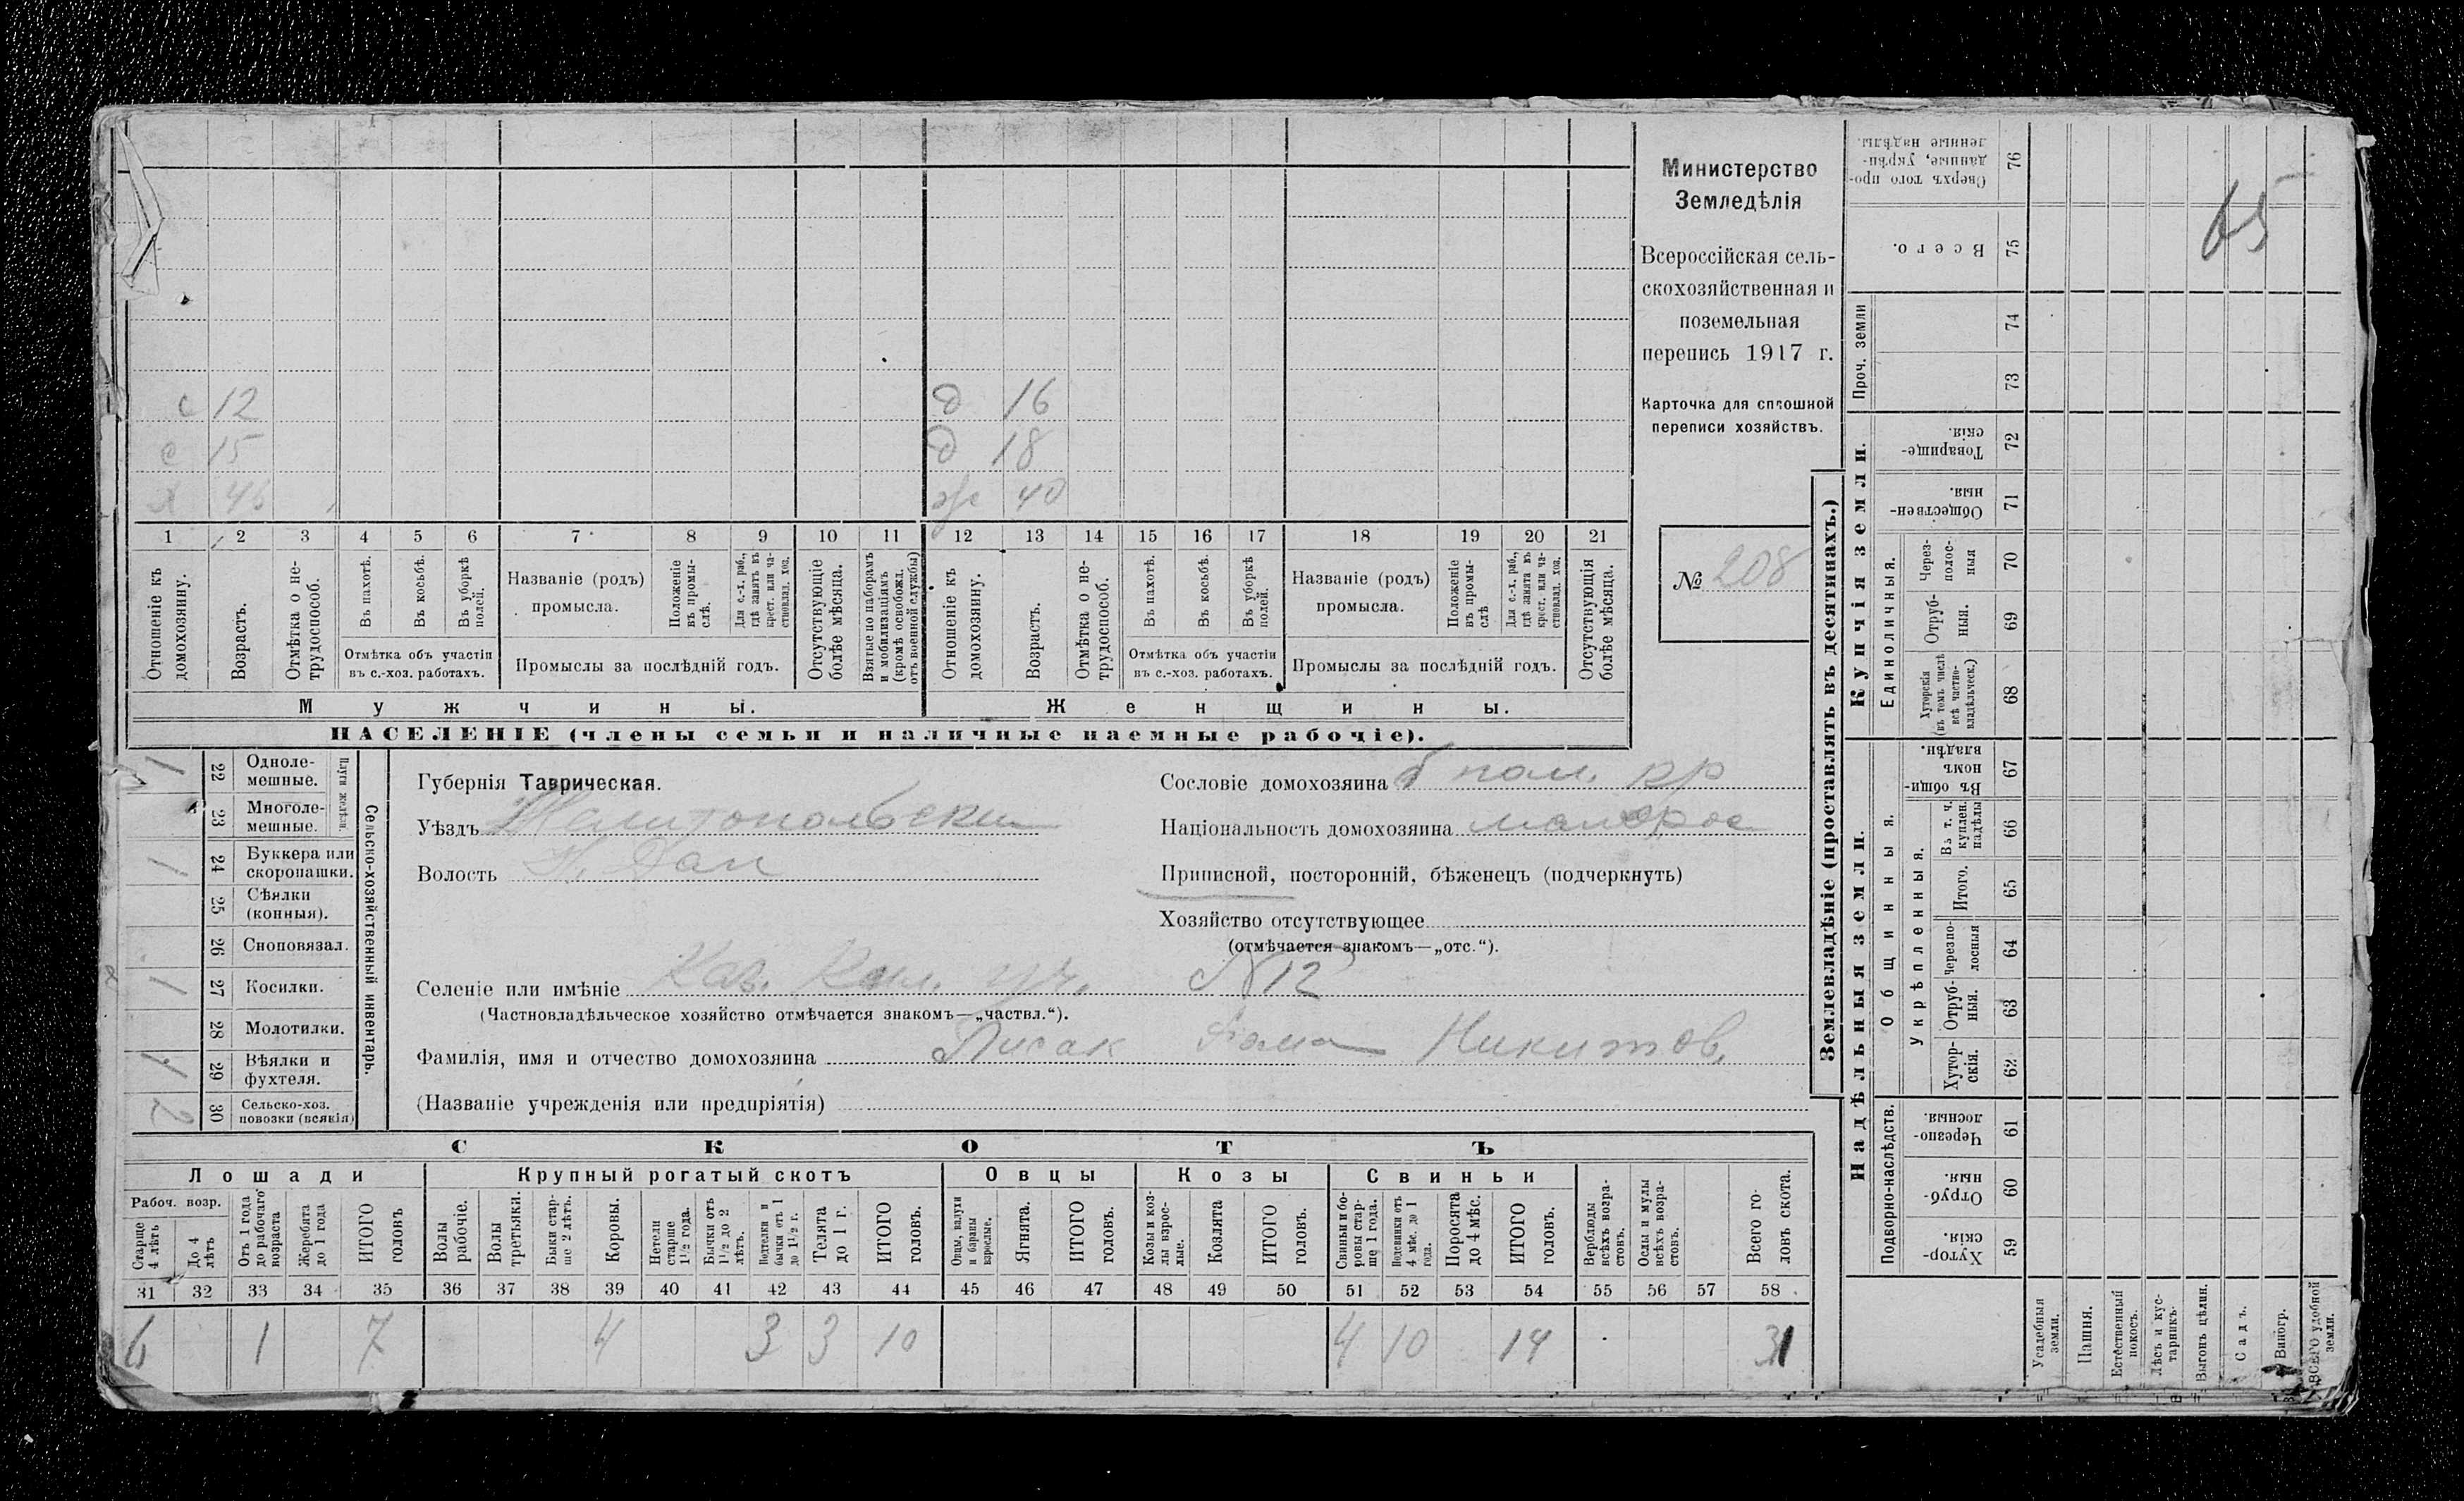 Министерство
Земледѣлія
Всероссійская сель-
скохозяйственная и
поземельная
перепись 1917 г.
Карточка для сплошной
переписи хозяйствъ.
№ 208
с 12
с 15
х 46
д 16
д 18
ж 40
1 2 3 4 5 6 7 8 9 10 11 12 13 14 15 16 17 18 19 20 21
Отношеніе къ домохозяину.
Возрастъ.
Отмѣтка о не-трудоспособ.
Въ пахотѣ.
Въ косьбѣ.
Въ уборкѣ полей.
Отмѣтка объ участіи въ с.-хоз. работахъ.
Названіе (родъ) промысла.
Положеніе въ промы-слѣ.
Для с.-х. раб., гдѣ занятъ въ крест. или ча-стновлад. хоз.
Промыслы за послѣдній годъ.
Отсутствующіе болѣе мѣсяца.
Взятые по наборамъ и мобилизаціямъ (кромѣ освобожд. отъ военной службы)
Отношеніе къ домохозяину.
Возрастъ.
Отмѣтка о не-трудоспособ.
Въ пахотѣ.
Въ косьбѣ.
Въ уборкѣ полей.
Отмѣтка объ участіи въ с.-хоз. работахъ.
Названіе (родъ) промысла.
Положеніе въ промы-слѣ
Для с.-х. раб., гдѣ занята въ крест. или ча-стновлад. хоз.
Промыслы за послѣдній годъ.
Отсутствующія болѣе мѣсяца.
Мужчины.
Женщины.
НАСЕЛЕНІЕ (члены семьи и наличные наемные рабочіе).
Сельско-хозяйственный инвентарь.
Плуги желѣзн.
1 22 Одноле-мешные.
23 Многоле-мешные.
1 24 Буккера или скоропашки.
25 Сѣялки (конныя).
26 Сноповязал.
1 27 Косилки.
28 Молотилки.
1 29 Вѣялки и фухтеля.
2 30 Сельско-хоз. повозки (всякія)
Губернія Таврическая.
Уѣздъ Мелитопольски
Волость
Сословіе домохозяина б пом. кр
Національность домохозяина малорос
Приписной, посторонній, бѣженецъ (подчеркнуть)
Хозяйство отсутствующее
(отмѣчается знакомъ—„отс.“).
Селеніе или имѣніе Каз. уч. №12
(Частновладѣльческое хозяйство отмѣчается знакомъ—„частвл.“).
Фамилія, имя и отчество домохозяина Писак Фома Никитов.
(Названіе учрежденія или предпріятія)
СКОТЪ
Лошади
Крупный рогатый скотъ
Овцы
Козы
Свиньи
Рабоч. возр.
Старше 4 лѣтъ
До 4 лѣтъ
Отъ 1 года до рабочаго возраста
Жеребята до 1 года
ИТОГО головъ
Волы рабочіе.
Волы третьяки.
Быки стар-ше 2 лѣтъ.
Коровы.
Нетели старше 1½ года.
Бычки отъ 1½ до 2 лѣтъ.
Подтелки и бычки отъ 1 до 1½ г.
Телята до 1 г.
ИТОГО головъ.
Овцы, валухи и бараны взрослые.
Ягнята.
ИТОГО головъ.
Козы и коз-лы взрос-лые.
Козлята
ИТОГО головъ.
Свиньи и бо-ровы стар-ше 1 года.
Подсвинки отъ 4 мѣс. до 1 года.
Поросята до 4 мѣс.
ИТОГО головъ.
Верблюды всѣхъ возра-стовъ.
Ослы и мулы всѣхъ возра-стовъ.
Всего го-ловъ скота.
31 32 33 34 35 36 37 38 39 40 41 42 43 44 45 46 47 48 49 50 51 52 53 54 55 56 57 58
6 1 7 4 3 3 10 4 10 14 31
Землевладѣніе (проставлять въ десятинахъ.)
Надѣльныя земли.
Купчія земли.
Проч. земли
Подворно-наслѣдств.
Общинныя.
Укрѣпленныя.
Единоличныя.
Сверхъ того про-данные, укрѣп-ленные надѣлы. 76
Всего. 75
74
73
Товарище-скія. 72
Обществен-ныя. 71
Через-полос-ныя 70
Отруб-ныя. 69
Хуторскія (въ томъ числѣ всѣ частно-владѣльческ.) 68
Въ общи-номъ владѣн. 67
Въ т. ч. куплен. надѣлы 66
Итого. 65
Черезпо-лосныя 64
Отруб-ныя. 63
Хутор-скія. 62
Черезпо-лосныя. 61
Отруб-ныя. 60
Хутор-скія. 59
65
Усадебныя земли.
Пашня.
Естественный покосъ.
Лѣсъ и кус-тарникъ.
Выгонъ цѣлин.
Садъ.
Виногр.
ВСЕГО удобной земли.